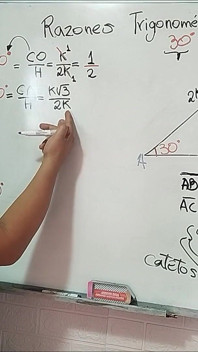 Razones Trigonomé
30°
0° = CO/H = K¹/2K₁ = 1/2
0° = C/H = K√3/2K
2
A 30°
AB
AC
catetos